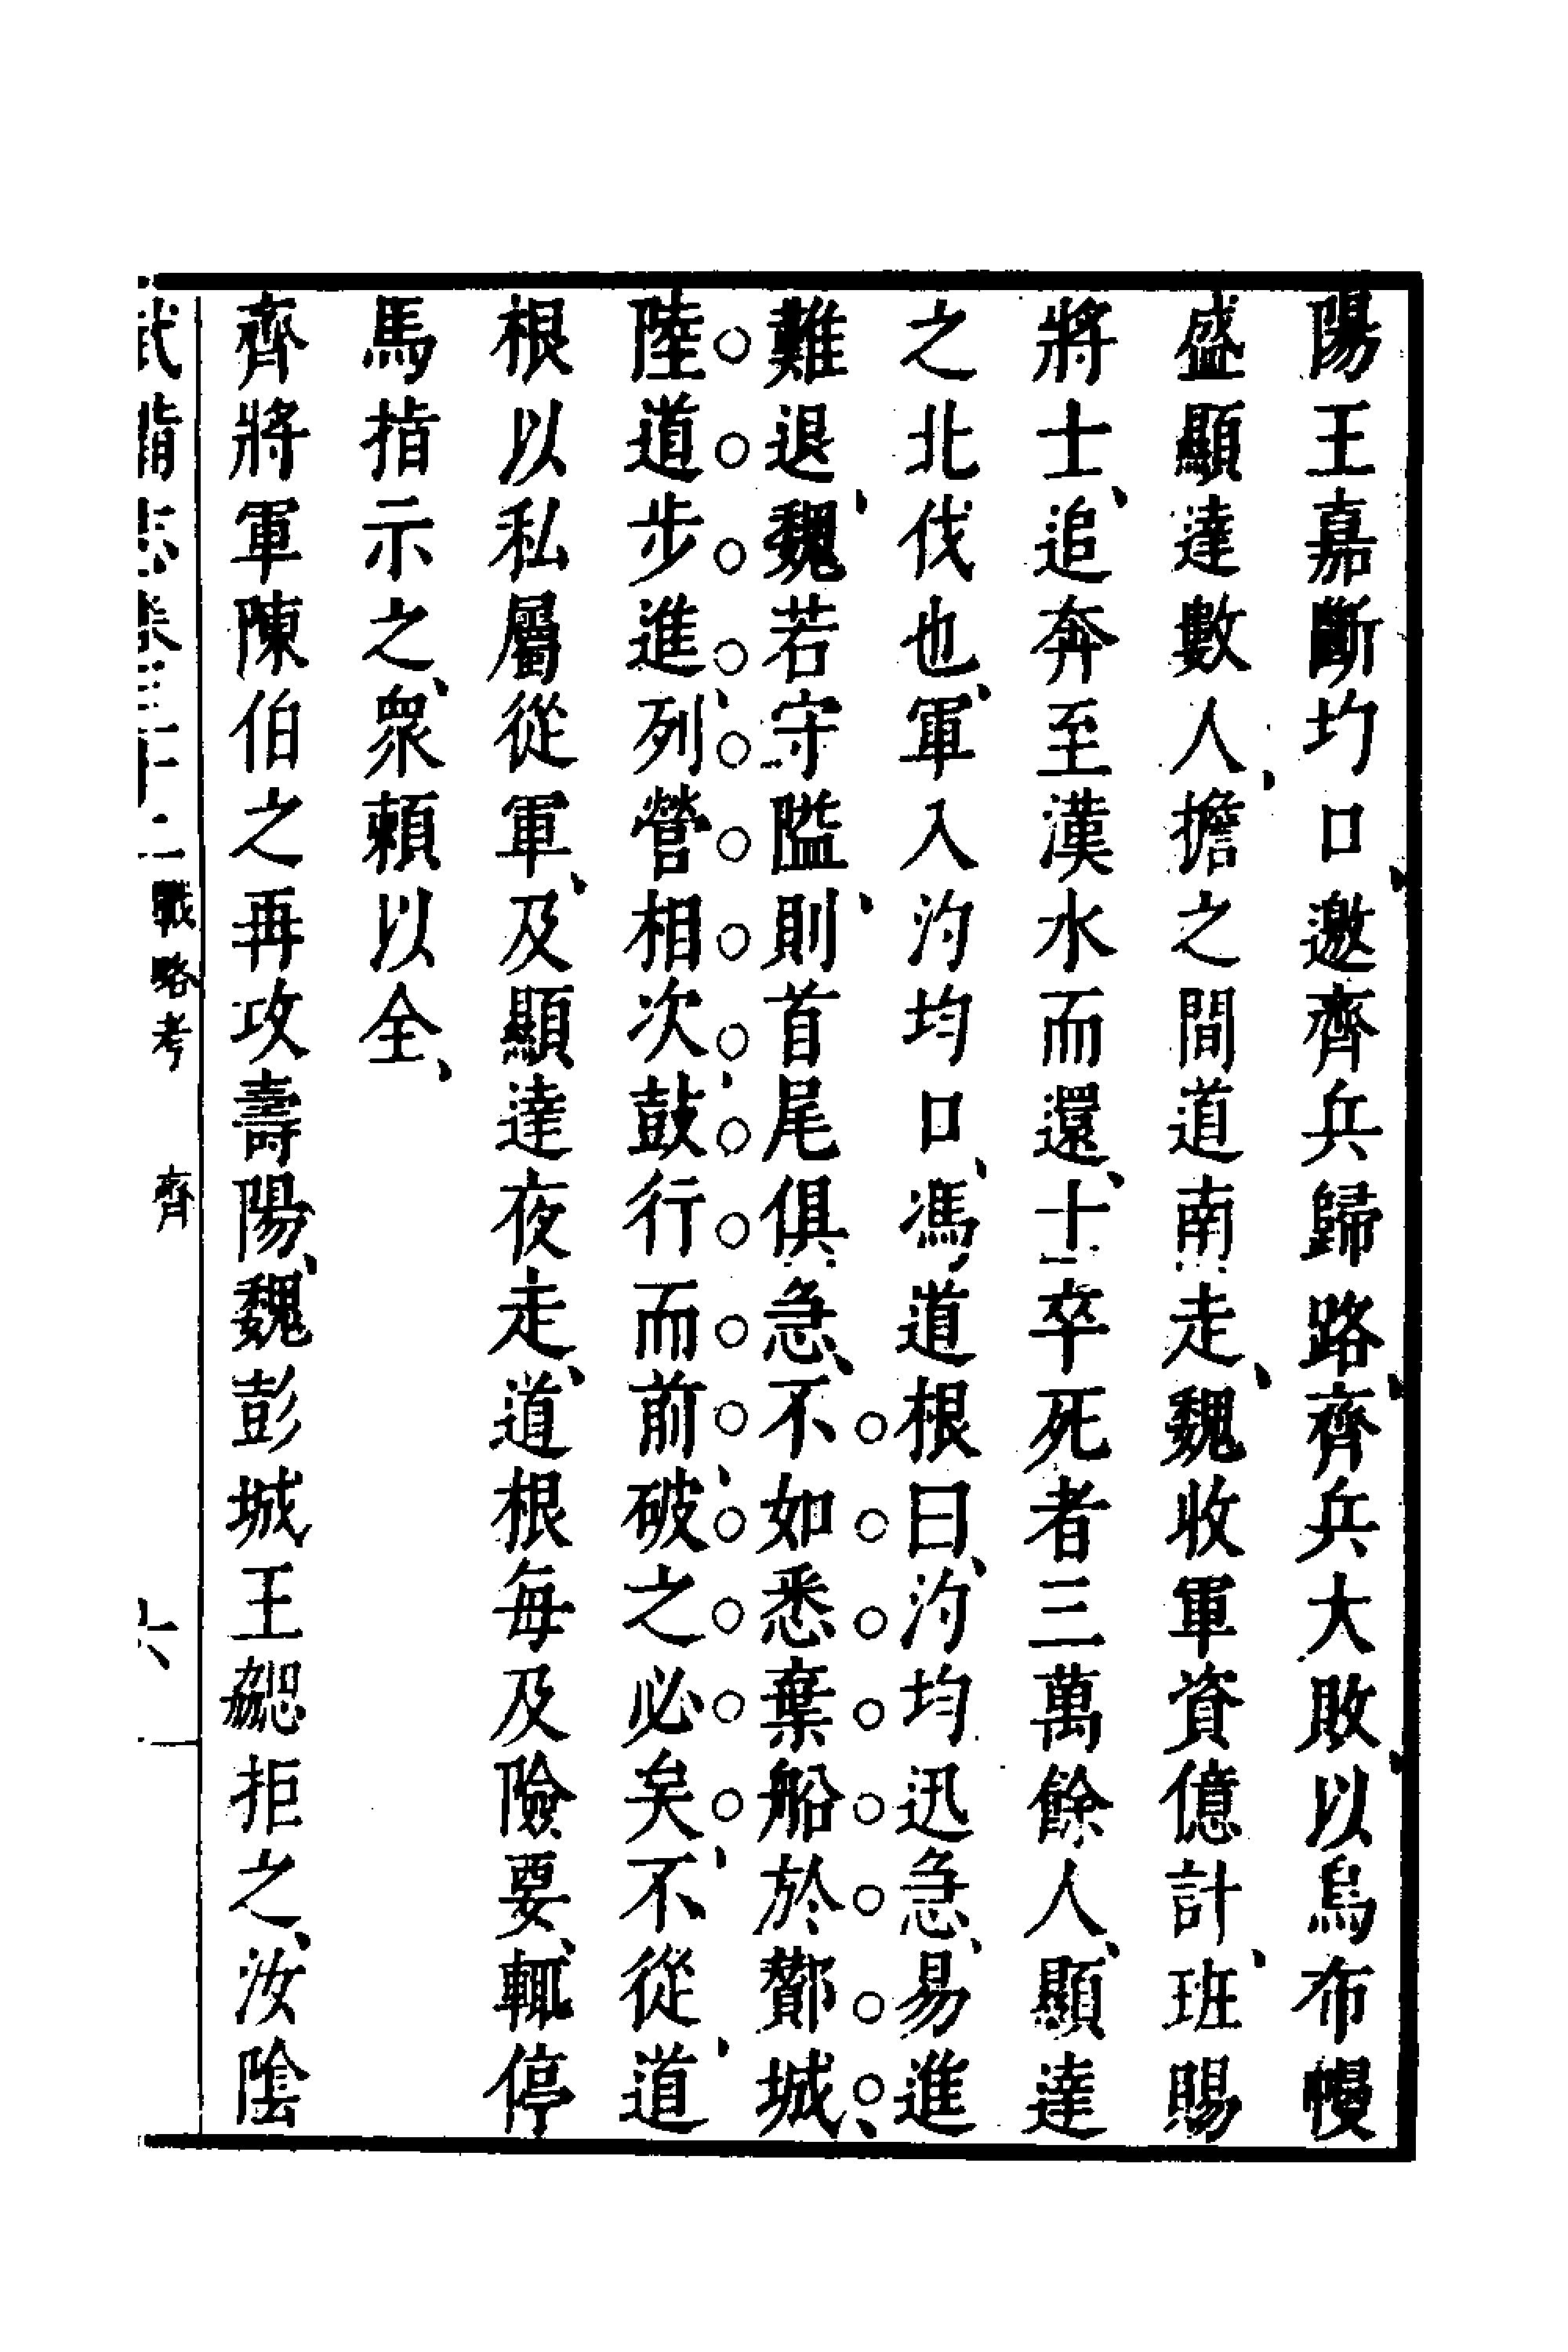 陽王嘉斷圴口、邀齊兵歸路、齊兵大敗、以烏布幔
盛顯達數人、擔之間道南走、魏收軍資億計、班賜
將士、追奔至漢水而還、士卒死者三萬餘人、顯達
之北伐也、軍入汋均口、馮道根曰、汋均迅急、易進
難退、魏若守隘、則首尾俱急、不如悉棄船於酇城、
陸道步進、列營相次、鼓行而前、破之必矣、不從、道
根以私屬從軍、及顯達夜走、道根每及險要、輒停
馬指示之、衆賴以全、
齊將軍陳伯之再攻壽陽、魏彭城王勰拒之、汝陰
武備志卷三十二 戰略考 齊 六